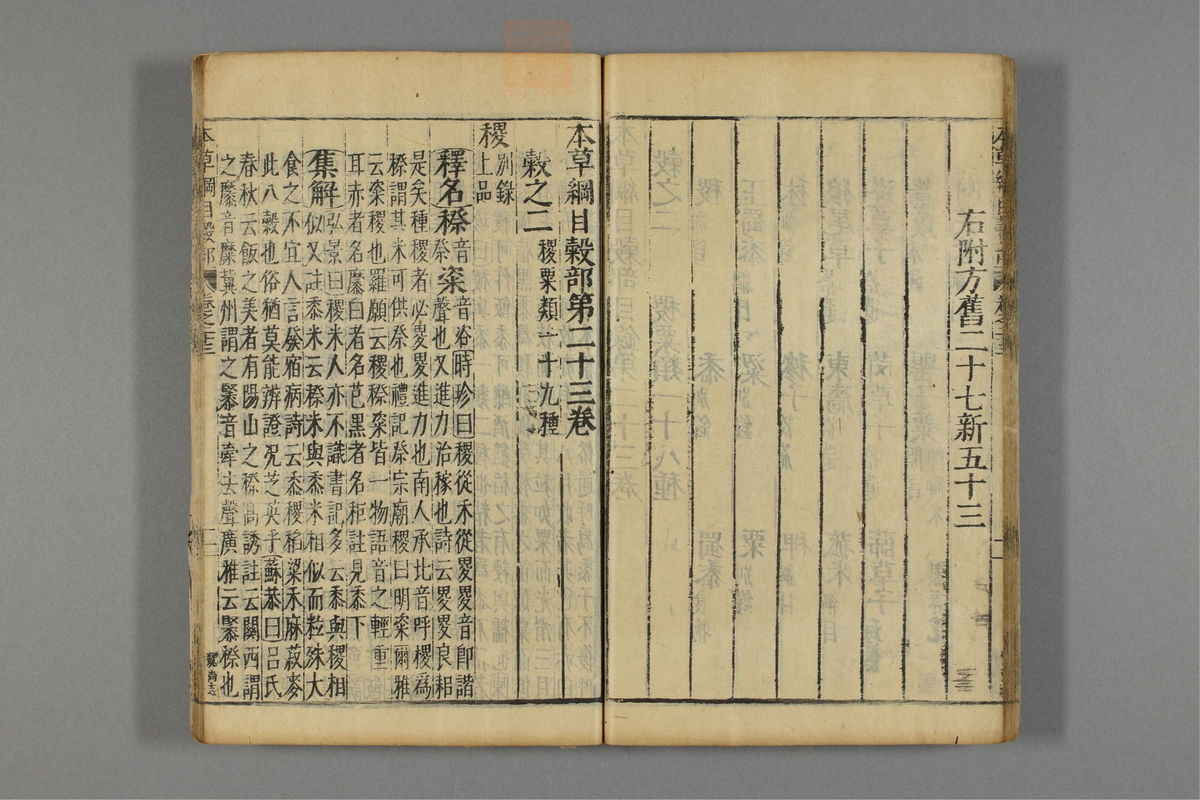 右附方舊二十七新五十三
本草綱目穀部第二十三卷
穀之二 稷粟類一十九種
稷 別錄上品
釋名 穄音祭 粢音咨 時珍曰稷從禾從畟畟音即諧
聲也又進力治稼也詩云畟畟良耜
是矣種稷者必畟畟進力也南人承北音呼稷為
穄謂其米可供祭也禮記祭宗廟稷曰明粢爾雅
云粢稷也羅願云稷穄粢皆一物語音之輕重
耳赤者名穈白者名芑黑者名秬註見黍下
集解 弘景曰稷米人亦不識書記多云黍與稷相
似又註黍米云穄米與黍米相似而粒殊大
食之不宜人言發宿病詩云黍稷稻粱禾麻菽麥
此八穀也俗猶莫能辨證況芝英乎蘇恭曰呂氏
春秋云飯之美者有陽山之穄高誘註云關西謂
之穈音糜冀州謂之音牽去聲廣雅云穄也
本草綱目穀部 卷之二十三